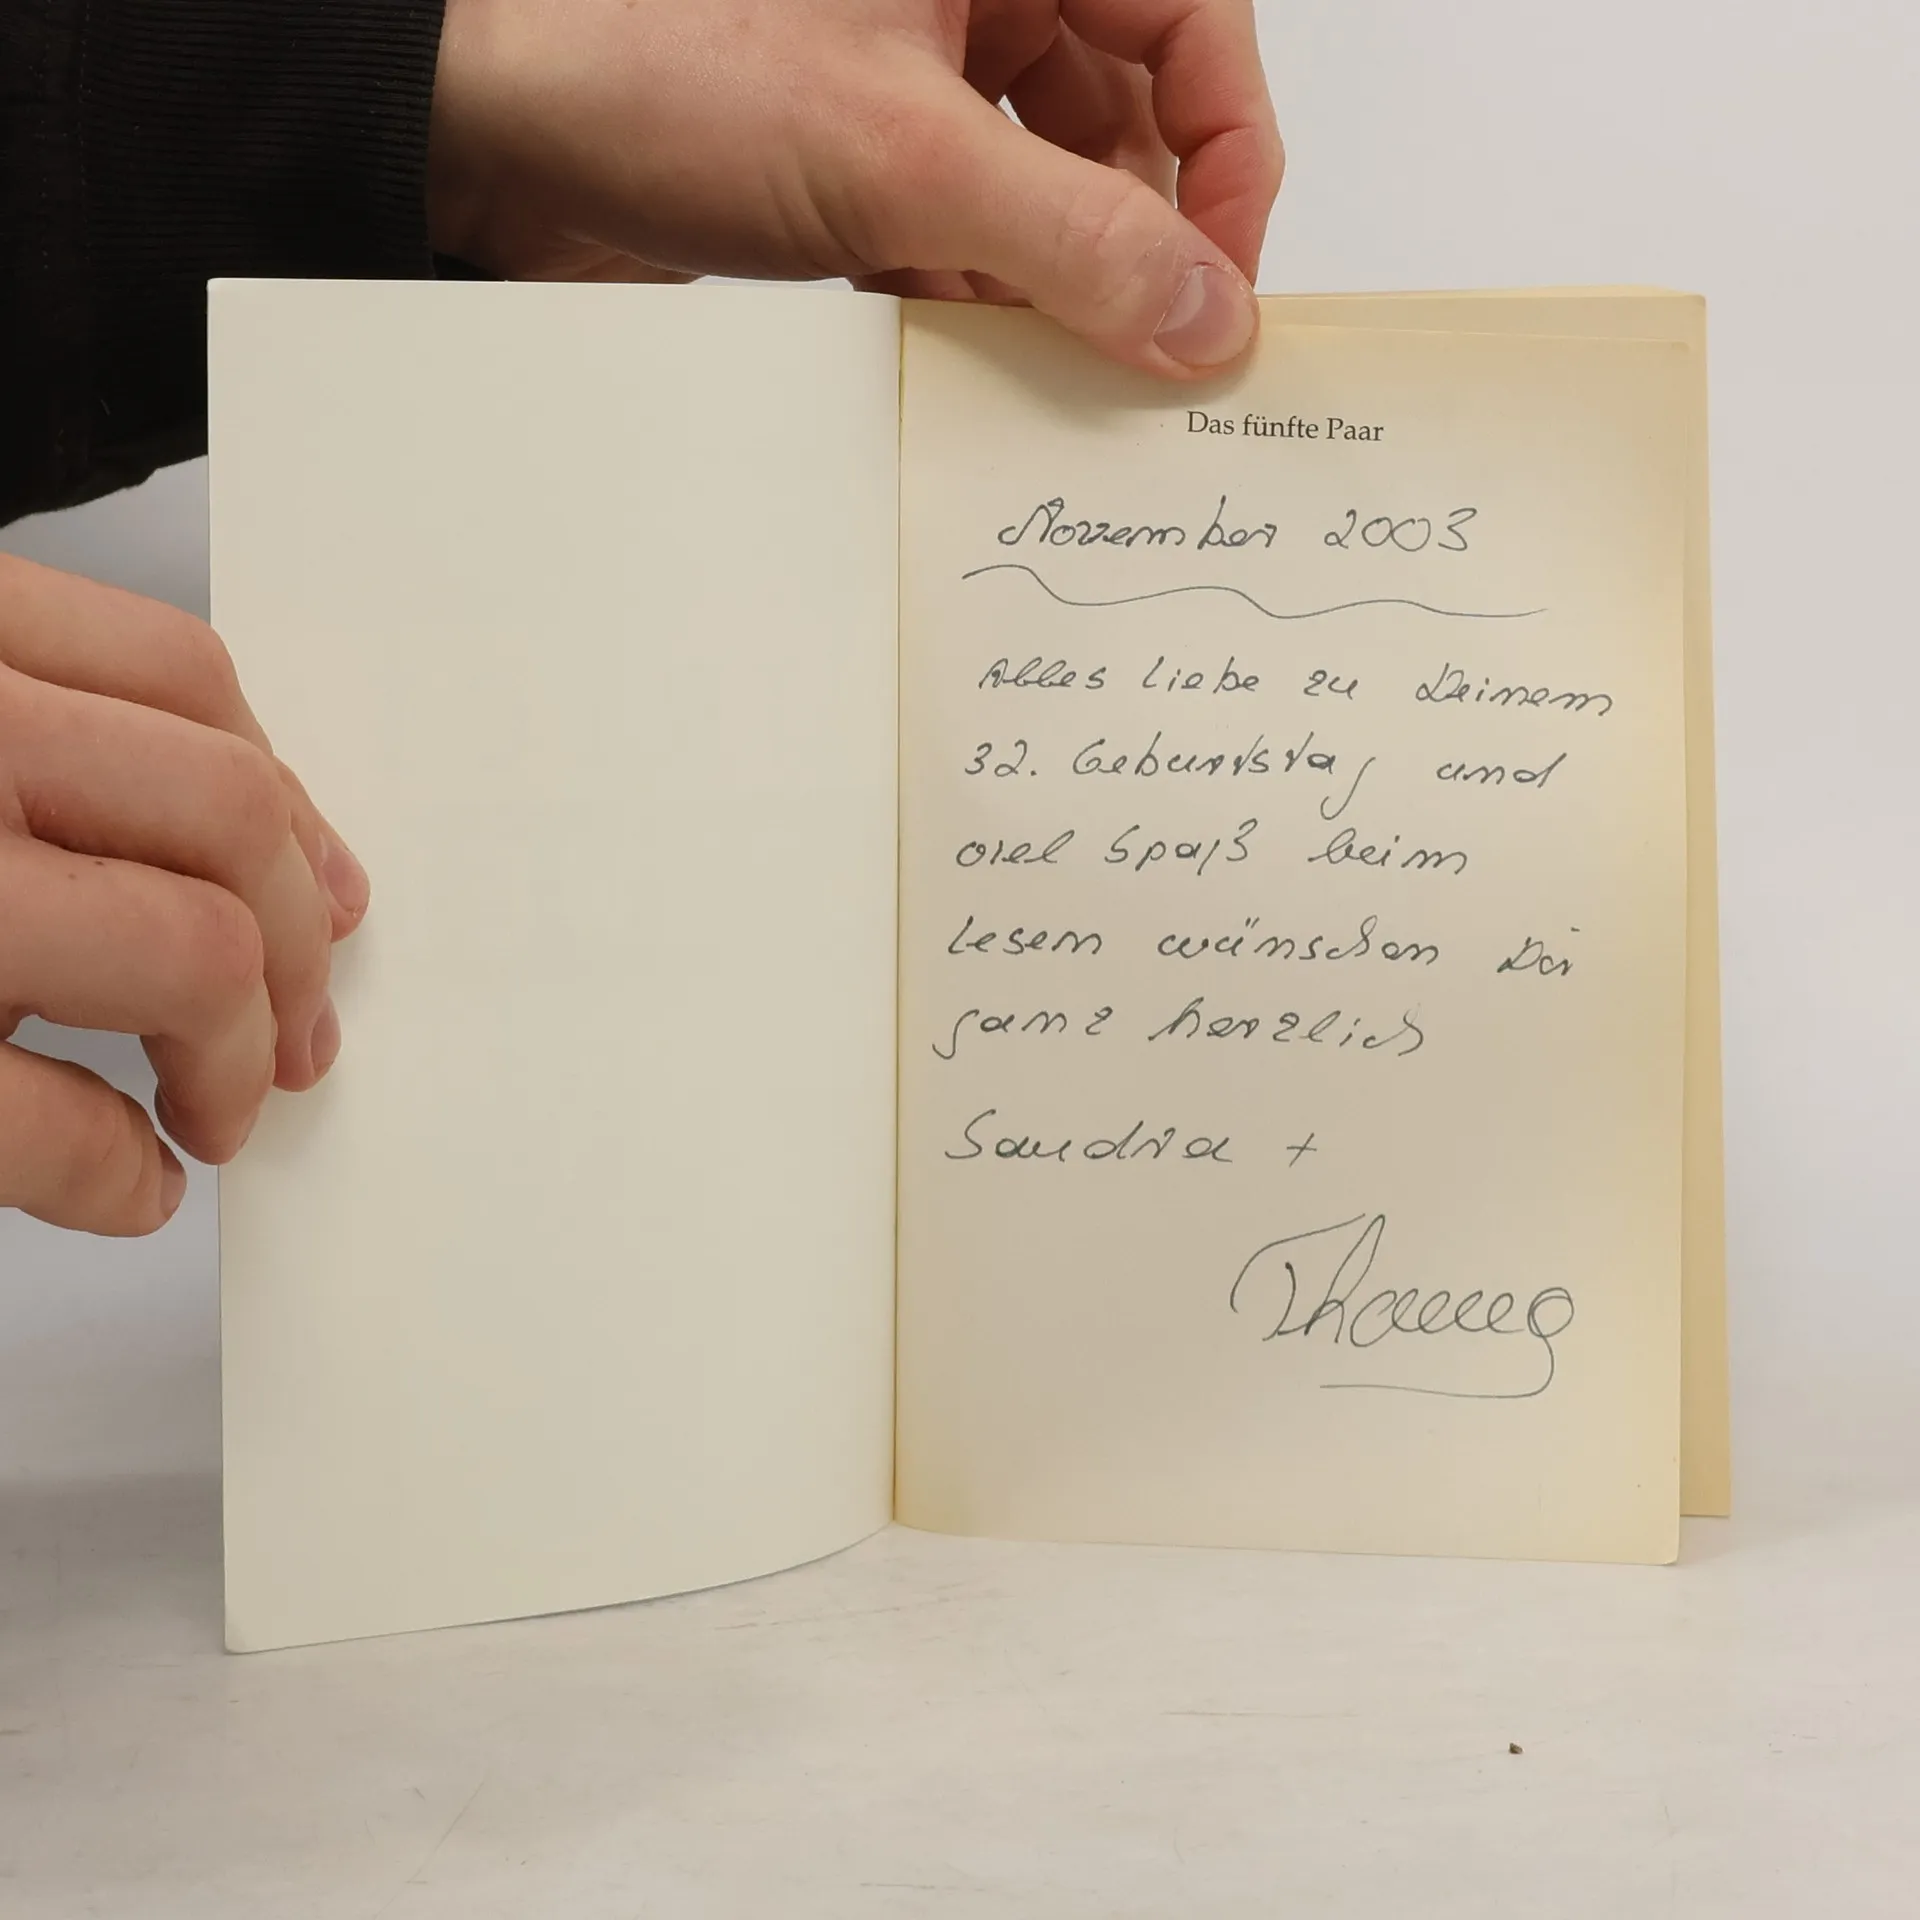 Das fünfte Paar
November 2003
Alles Liebe zu Deinem
32. Geburtstag und
viel Spaß beim
Lesen wünschen Dir
ganz herzlich
Sandra +
Thomas